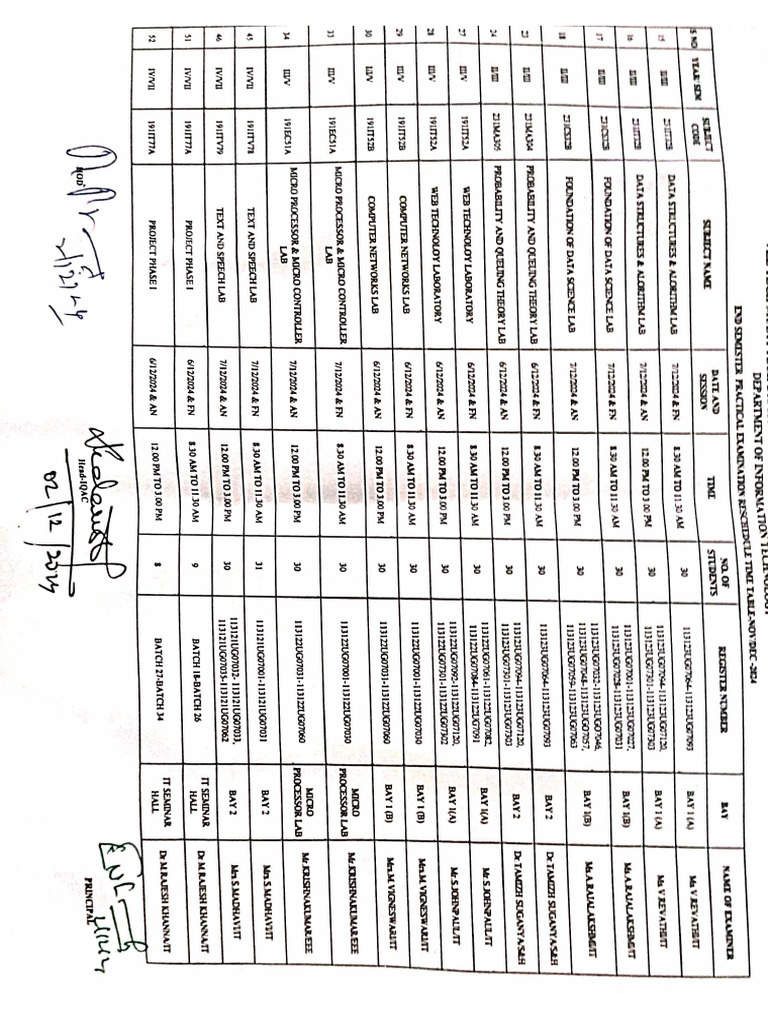 DEPARTMENT OF INFORMATION TECHNOLOGY
END SEMESTER PRACTICAL EXAMINATION RESCHEDULE TIME TABLE-NOV/DEC-2024
S NO YEAR/ SEM SUBJECT CODE SUBJECT NAME DATE AND SESSION TIME NO. OF STUDENTS REGISTER NUMBER BAY NAME OF EXAMINER
15 II/III 231IT32B DATA STRUCTURES & ALORITHM LAB 7/12/2024 & FN 8.30 AM TO 11.30 AM 30 113123UG07064-113123UG07093 BAY 1(A) Ms V.REVATHI/IT
16 II/III 231IT32B DATA STRUCTURES & ALORITHM LAB 7/12/2024 & AN 12.00 PM TO 3.00 PM 30 113123UG07094-113123UG07120, 113123UG07301-113123UG07303 BAY 1(A) Ms V.REVATHI/IT
17 II/III 231CS32B FOUNDATION OF DATA SCIENCE LAB 7/12/2024 & FN 8.30 AM TO 11.30 AM 30 113123UG07001-113123UG07027, 113123UG07028-113123UG07031 BAY 1(B) Ms.A.RAJALAKSHMI/IT
18 II/III 231CS32B FOUNDATION OF DATA SCIENCE LAB 7/12/2024 & AN 12.00 PM TO 3.00 PM 30 113123UG07032-113123UG07046, 113123UG07048-113123UG07057, 113123UG07059-113123UG07063 BAY 1(B) Ms.A.RAJALAKSHMI/IT
23 II/III 231MA304 PROBABILITY AND QUEUING THEORY LAB 6/12/2024 & FN 8.30 AM TO 11.30 AM 30 113123UG07064-113123UG07093 BAY 2 Dr TAMIZH SUGANYA/S&H
24 II/III 231MA305 PROBABILITY AND QUEUING THEORY LAB 6/12/2024 & AN 12.00 PM TO 3.00 PM 30 113123UG07094-113123UG07120, 113123UG07301-113123UG07303 BAY 2 Dr TAMIZH SUGANYA/S&H
27 III/V 191IT52A WEB TECHNOLOY LABORATORY 6/12/2024 & FN 8.30 AM TO 11.30 AM 30 113122UG07061-113122UG07082, 113122UG07084-113122UG07091 BAY 1(A) Mr S.JOHNPAUL/IT
28 III/V 191IT52A WEB TECHNOLOY LABORATORY 6/12/2024 & AN 12.00 PM TO 3.00 PM 30 113122UG07092-113122UG07120, 113122UG07301-113122UG07302 BAY 1(A) Mr S.JOHNPAUL/IT
29 III/V 191IT52B COMPUTER NETWORKS LAB 6/12/2024 & FN 8.30 AM TO 11.30 AM 30 113122UG07001-113122UG07030 BAY 1 (B) Mrs.M.VIGNESWARI/IT
30 III/V 191IT52B COMPUTER NETWORKS LAB 6/12/2024 & AN 12.00 PM TO 3.00 PM 30 113122UG07031-113122UG07060 BAY 1 (B) Mrs.M.VIGNESWARI/IT
33 III/V 191EC51A MICRO PROCESSOR & MICRO CONTROLLER LAB 7/12/2024 & FN 8.30 AM TO 11.30 AM 30 113122UG07001-113122UG07030 MICRO PROCESSOR LAB Mr.KRISHNAKUMAR/EEE
34 III/V 191EC51A MICRO PROCESSOR & MICRO CONTROLLER LAB 7/12/2024 & AN 12.00 PM TO 3.00 PM 30 113122UG07031-113122UG07060 MICRO PROCESSOR LAB Mr.KRISHNAKUMAR/EEE
45 IV/VII 191ITV78 TEXT AND SPEECH LAB 7/12/2024 & FN 8.30 AM TO 11.30 AM 31 113121UG07001-113121UG07031 BAY 2 Mrs.S.MADHAVI/IT
46 IV/VII 191ITV79 TEXT AND SPEECH LAB 7/12/2024 & AN 12.00 PM TO 3.00 PM 30 113121UG07032-113121UG07033, 113121UG07035-113121UG07062 BAY 2 Mrs.S.MADHAVI/IT
51 IV/VII 191IT77A PROJECT PHASE I 6/12/2024 & FN 8.30 AM TO 11.30 AM 9 BATCH 18-BATCH 26 IT SEMINAR HALL Dr M.RAJESH KHANNA/IT
52 IV/VII 191IT77A PROJECT PHASE I 6/12/2024 & AN 12.00 PM TO 3.00 PM 8 BATCH 27-BATCH 34 IT SEMINAR HALL Dr M.RAJESH KHANNA/IT
HOD
Head-IQAC
02/12/2024
PRINCIPAL